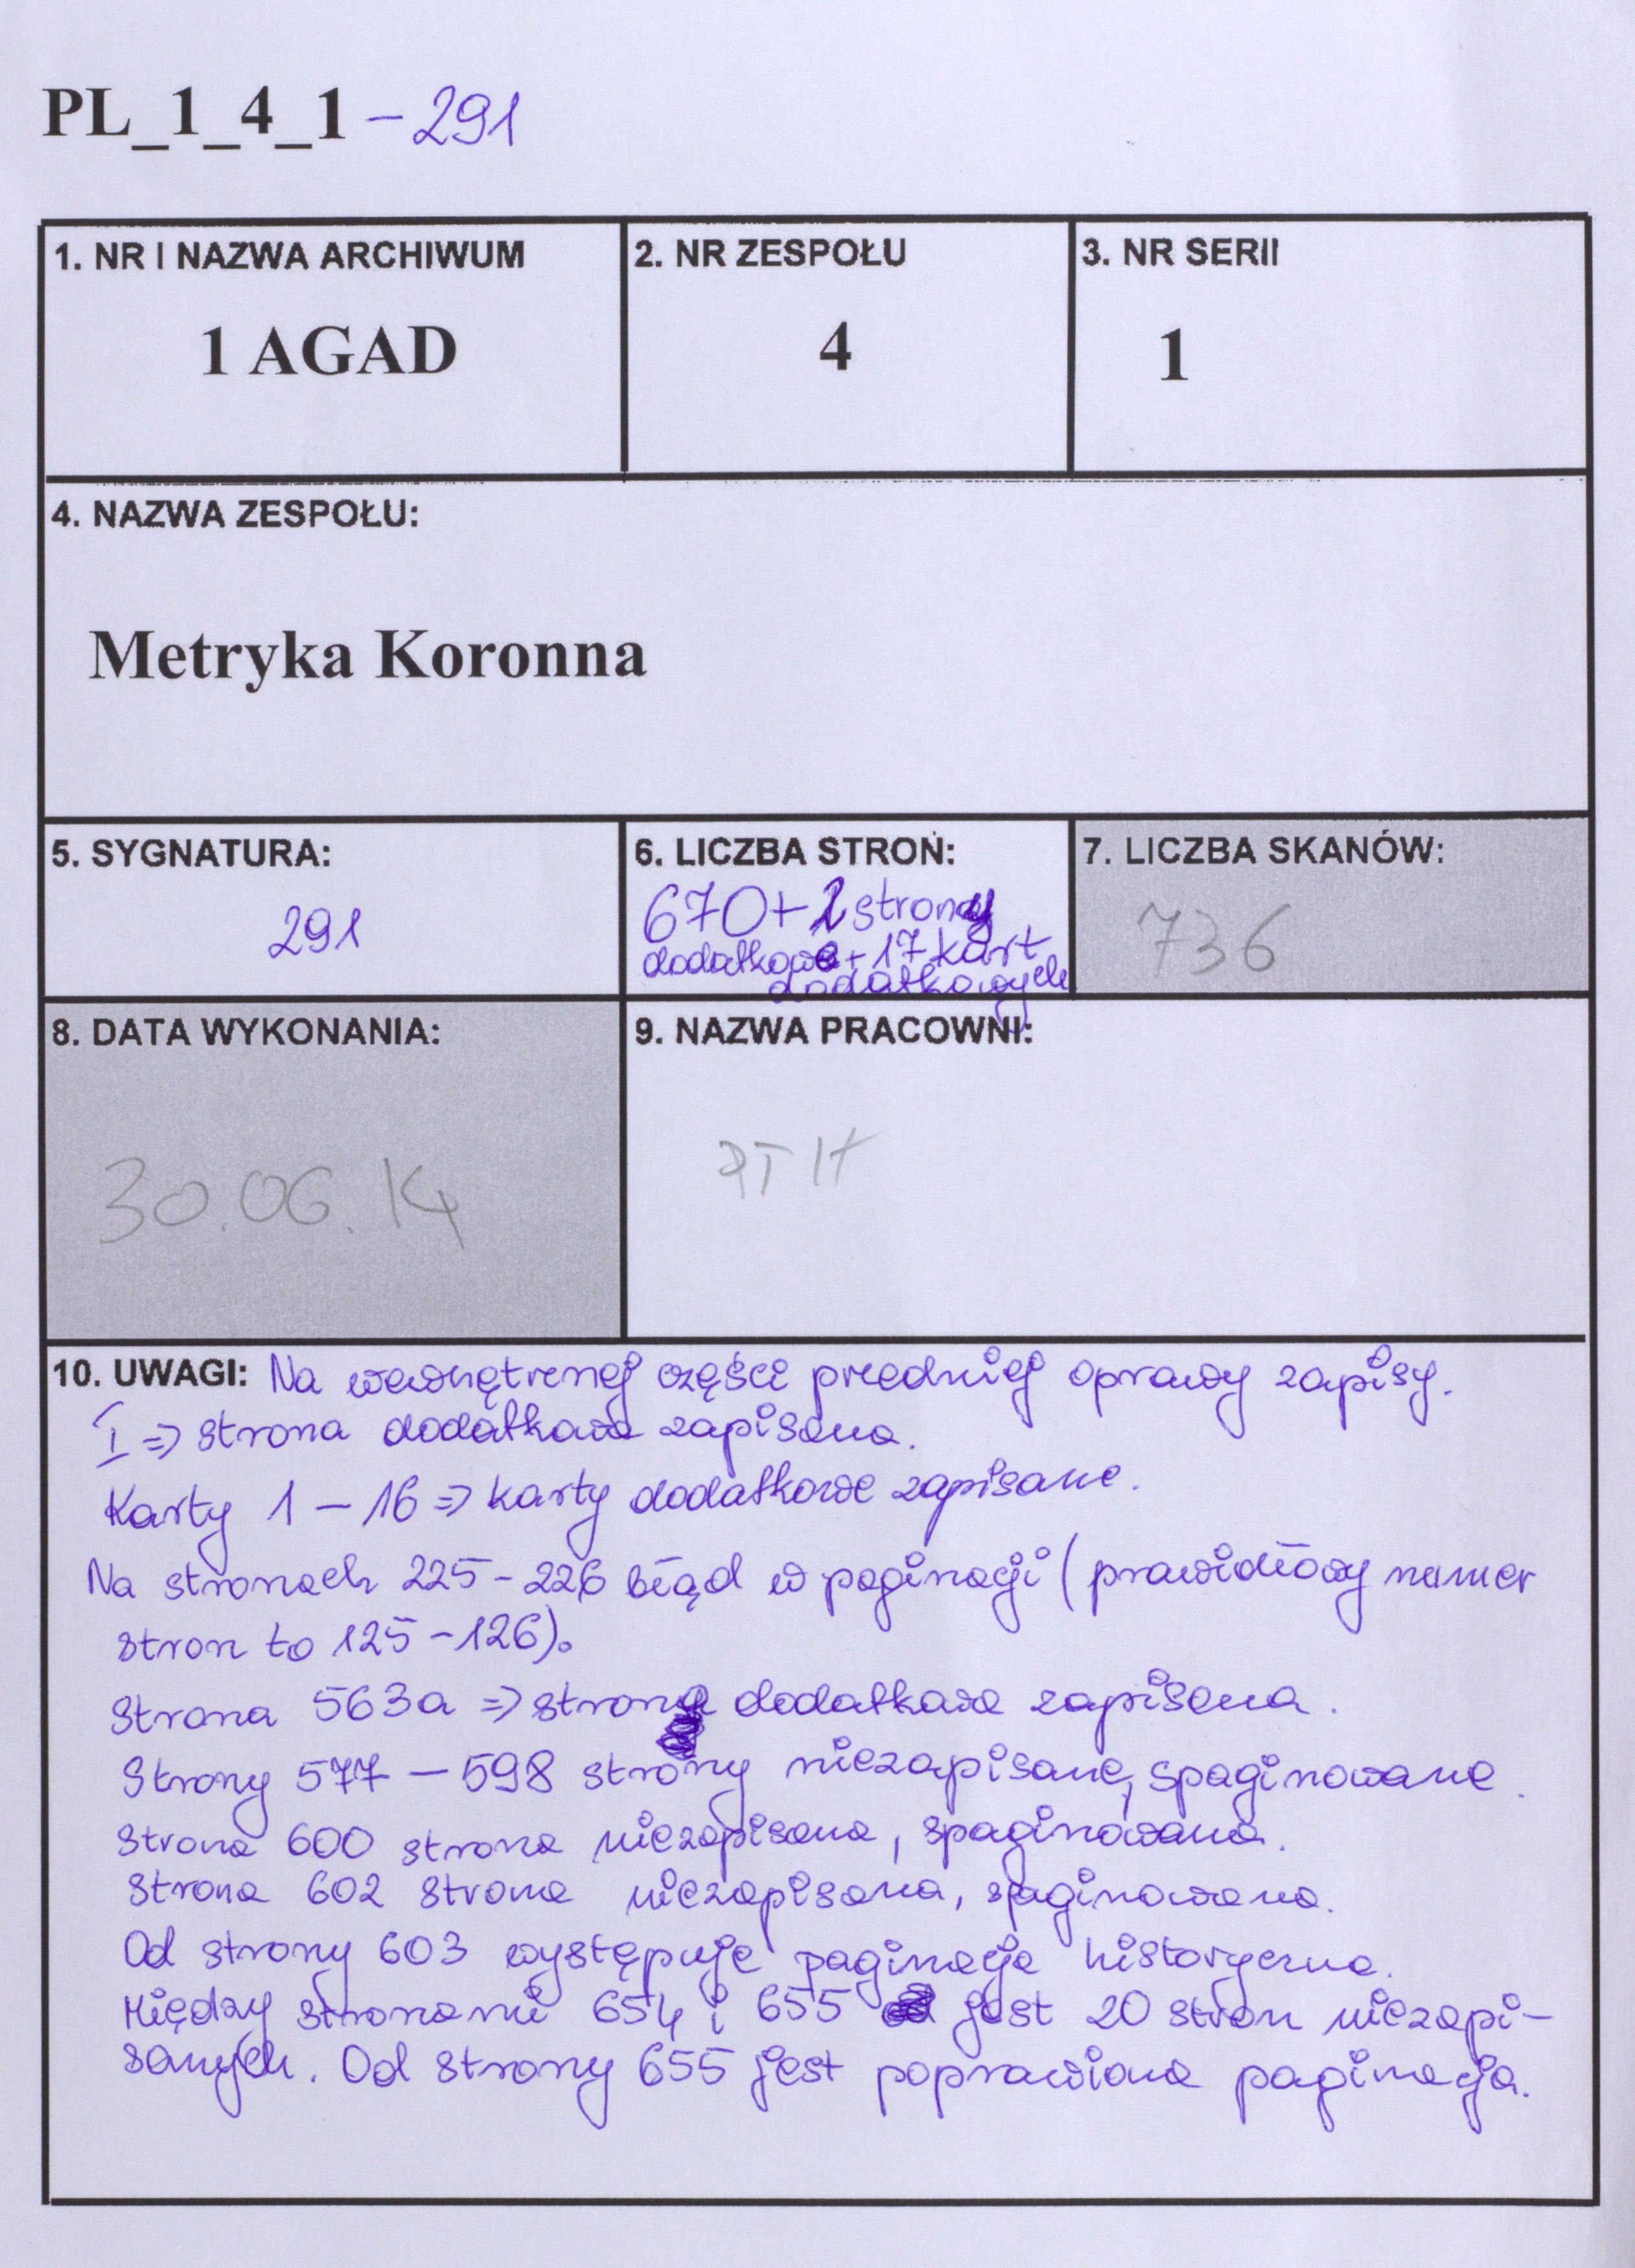 PL_1_4_1 - 291
1. NR I NAZWA ARCHIWUM
1 AGAD
2. NR ZESPOŁU
4
3. NR SERII
1
4. NAZWA ZESPOŁU:
Metryka Koronna
5. SYGNATURA:
291
6. LICZBA STRON:
670+2 strony
dodatkowe + 17 kart
dodatkowych
7. LICZBA SKANÓW:
736
8. DATA WYKONANIA:
30.06.14
9. NAZWA PRACOWNI:
10. UWAGI: Na wewnętrznej części przedniej oprawy zapisy.
I => strona dodatkowa zapisana.
Karty 1 - 16 => karty dodatkowe zapisane.
Na stronach 225-226 błąd w paginacji (prawidłowy numer
stron to 125-126).
Strona 563a => strona dodatkowa zapisana.
Strony 577 - 598 strony niezapisane, spaginowane.
Strona 600 strona niezapisana, spaginowana.
Strona 602 strona niezapisana, spaginowana.
Od strony 603 występuje paginacja historyczna.
Między stronami 654 i 655 jest 20 stron niezapi-
sanych. Od strony 655 jest poprawiona paginacja.